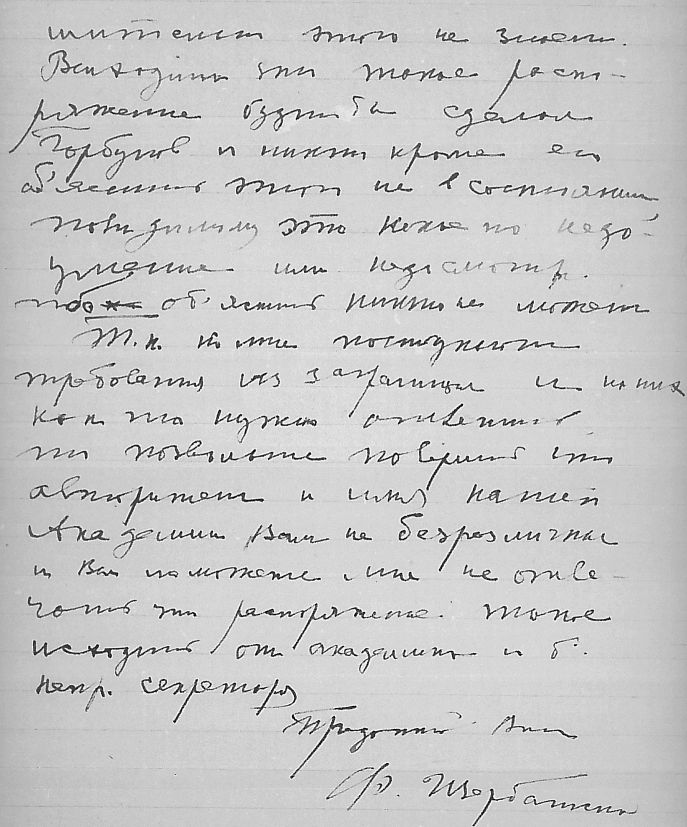 этого не знает.
что такое распо-
ряжение будто бы сделал
Горбунов и никто кроме его
объяснить этого не в состоянии
повидимому это какое то недо-
умение или недосмотр.
об'яснить никто не может
Т. к. ко мне поступают
требования из заграницы и на них
как то нужно ответить
то позвольте поверить что
авторитет и имя нашей
Академии Вам не безразличны
и Вы поможете мне не отве-
чать что распоряжение такое
исходит от академика и б.
непр. секретаря
Преданный Вам
Ф. Щербатской